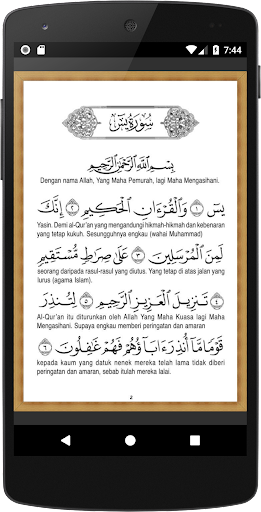 7:44
سورة يس
بِسْمِ ٱللَّهِ ٱلرَّحْمَٰنِ ٱلرَّحِيمِ
Dengan nama Allah, Yang Maha Pemurah, lagi Maha Mengasihani.
يسٓ ١ وَٱلْقُرْءَانِ ٱلْحَكِيمِ ٢ إِنَّكَ
Yasin. Demi al-Qur'an yang mengandungi hikmah-hikmah dan kebenaran
yang tetap kukuh. Sesungguhnya engkau (wahai Muhammad)
لَمِنَ ٱلْمُرْسَلِينَ ٣ عَلَىٰ صِرَٰطٍ مُّسْتَقِيمٍ
seorang daripada rasul-rasul yang diutus. Yang tetap di atas jalan yang
lurus (agama Islam).
٤ تَنزِيلَ ٱلْعَزِيزِ ٱلرَّحِيمِ ٥ لِتُنذِرَ
Al-Qur'an itu diturunkan oleh Allah Yang Maha Kuasa lagi Maha
Mengasihani. Supaya engkau memberi peringatan dan amaran
قَوْمًا مَّآ أُنذِرَ ءَابَآؤُهُمْ فَهُمْ غَٰفِلُونَ ٦
kepada kaum yang datuk nenek mereka telah lama tidak diberi
peringatan dan amaran, sebab itulah mereka lalai.
2